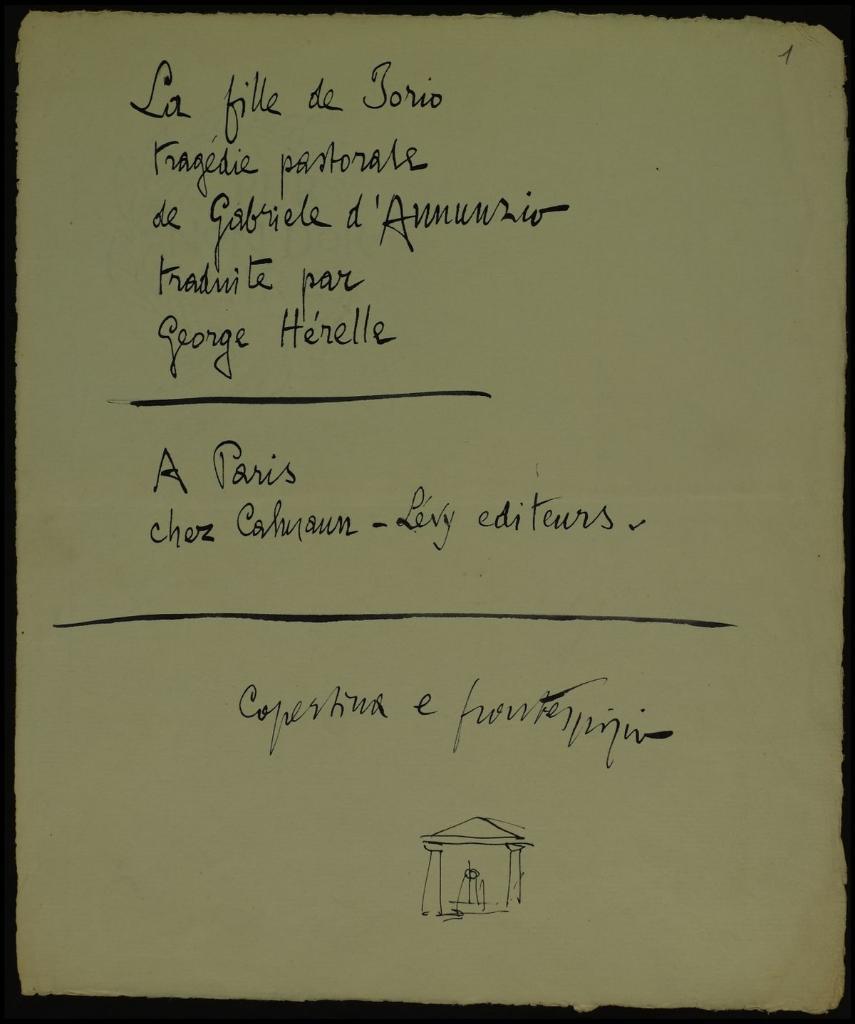 1
La fille de Jorio
tragédie pastorale
de Gabriele d'Annunzio
traduite par
George Hérelle
A Paris
chez Calmann - Lévy editeurs.
Copertina e frontespizio